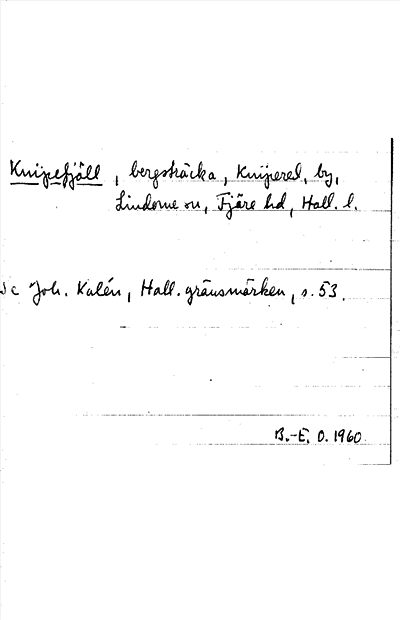 Knipefjäll, bergsträcka, Knipered, by,
Lindome sn, Fjäre hd, Hall. l.
Joh. Kalén, Hall. gränsmärken, s. 53.
B.-E. O. 1960